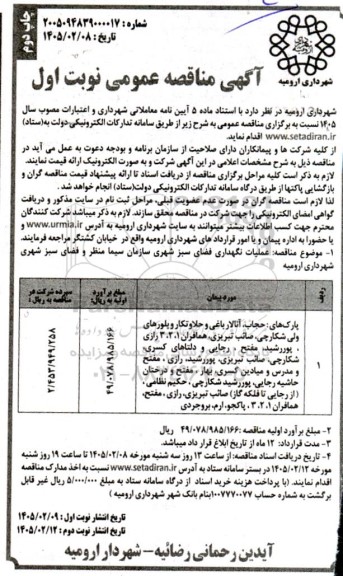 چاپ دوم
شماره: ۲۰۰۵۰۹۴۸۳۹۰۰۰۰۱۷
تاریخ: ۱۴۰۵/۰۲/۰۸
شهرداری ارومیه
آگهی مناقصه عمومی نوبت اول
شهرداری ارومیه در نظر دارد با استناد ماده ۵ آیین نامه معاملاتی شهرداری و اعتبارات مصوب سال
۱۴۰۵ نسبت به برگزاری مناقصه عمومی به شرح زیر از طریق سامانه تدارکات الکترونیکی دولت به(ستاد)
www.setadiran.ir اقدام نماید.
از کلیه شرکت ها و پیمانکاران دارای صلاحیت از سازمان برنامه و بودجه دعوت به عمل می آید در
مناقصه ذیل به شرح مشخصات اعلامی در این آگهی شرکت و به صورت الکترونیک ارائه قیمت نمایند.
لازم به ذکر است کلیه مراحل برگزاری مناقصه از دریافت اسناد تا ارائه پیشنهاد قیمت مناقصه گران و
بازگشایی پاکتها از طریق درگاه سامانه تدارکات الکترونیکی دولت(ستاد) انجام خواهد شد.
لذا لازم است مناقصه گران در صورت عدم عضویت قبلی، مراحل ثبت نام در سایت مذکور و دریافت
گواهی امضای الکترونیکی را جهت شرکت در مناقصه محقق سازند. لازم به ذکر میباشد شرکت کنندگان
محترم جهت کسب اطلاعات بیشتر میتوانند به سایت شهرداری ارومیه به آدرس www.urmia.ir و
یا حضورا به اداره پیمان و یا امور قرارداد های شهرداری ارومیه واقع در خیابان کشتگر مراجعه فرمایند.
۱- موضوع مناقصه: عملیات نگهداری فضای سبز شهری سازمان سیما منظر و فضای سبز شهری
شهرداری ارومیه
ردیف
مورد پیمان
مبلغ برآورد اولیه به ریال:
سپرده شرکت در مناقصه به ریال:
۱
پارک‌های: حجاب، آتالار باغی و حلاوتکار و بلورهای
ولی شکارچی، صائب تبریزی، همافران ۱، ۲، ۳ رازی
، پوررشید، مفتح ، رجایی و دلتاهای کسری،
شکارچی، صائب تبریزی، پوررشید، رازی ، مفتح
و مدرس و میادین کسری، بهار ، مفتح و درختان
حاشیه رجایی، پوررشید شکارچی ، حکیم نظامی ،
( از رجایی تا فلکه گاز) صائب تبریزی، رازی ، مفتح،
همافران ۱، ۲، ۳ ، پاکجو، ارم، بروجردی
۴۹/۰۷۸/۹۸۵/۱۶۶
۲/۴۵۳/۹۴۹/۲۵۸
۲- مبلغ برآورد اولیه مناقصه: ۴۹/۰۷۸/۹۸۵/۱۶۶ ریال
۳- مدت قرارداد: ۱۲ ماه از تاریخ ابلاغ قرار داد میباشد.
۴- تاریخ دریافت اسناد مناقصه: از ساعت ۱۳ روز سه شنبه مورخه ۱۴۰۵/۰۲/۰۸ تا ساعت ۱۹ روز شنبه
مورخه ۱۴۰۵/۰۲/۱۲ در بستر سامانه ستاد به آدرس www.setadiran.ir نسبت به اخذ مدارک مناقصه
اقدام نمایند. (با پرداخت هزینه خرید اسناد از درگاه سامانه ستاد به مبلغ ۵/۰۰۰/۰۰۰ ریال غیر قابل
برگشت به شماره حساب ۱۰۰۷۷۷۰۰۷۷ بنام بانک شهر شهرداری ارومیه )
تاریخ انتشار نوبت اول : ۱۴۰۵/۰۲/۰۹
تاریخ انتشار نوبت دوم : ۱۴۰۵/۰۲/۱۲
آیدین رحمانی رضائیه- شهردار ارومیه